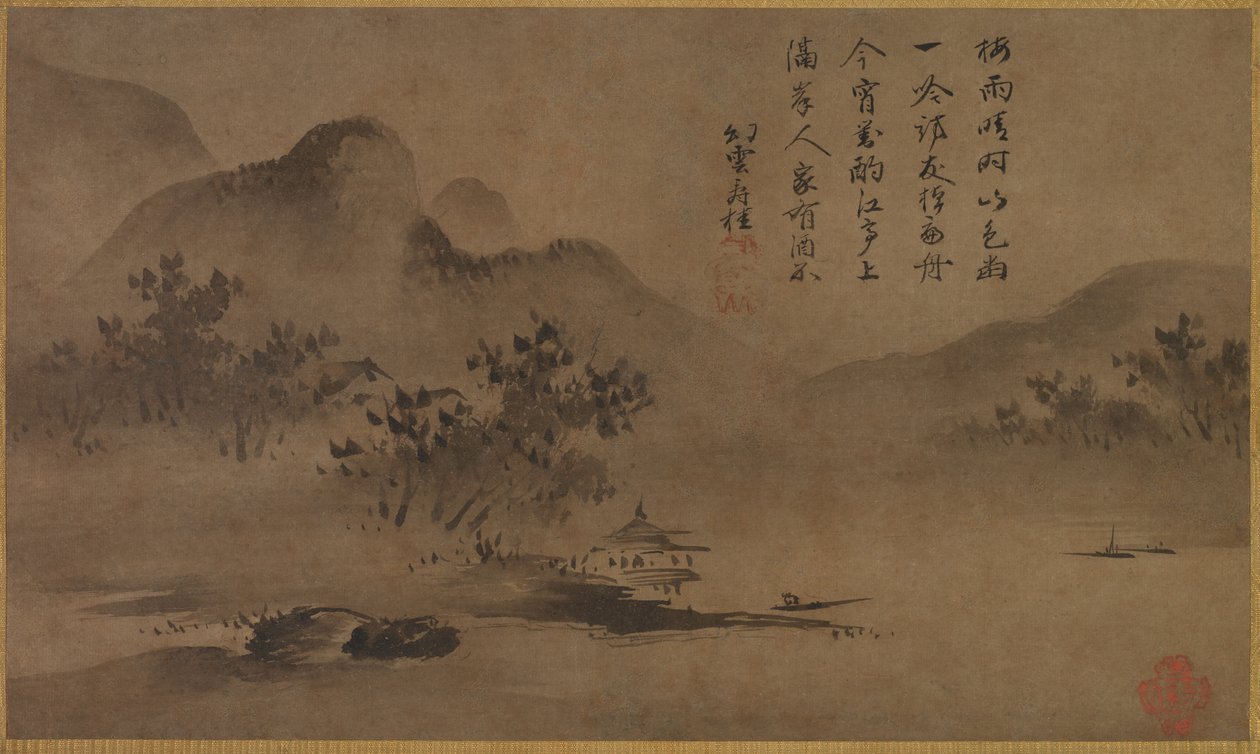 梅雨晴時山色幽
一吟訪友棹扁舟
今宵對酌江亭上
滿岸人家有酒不
幻雲壽桂